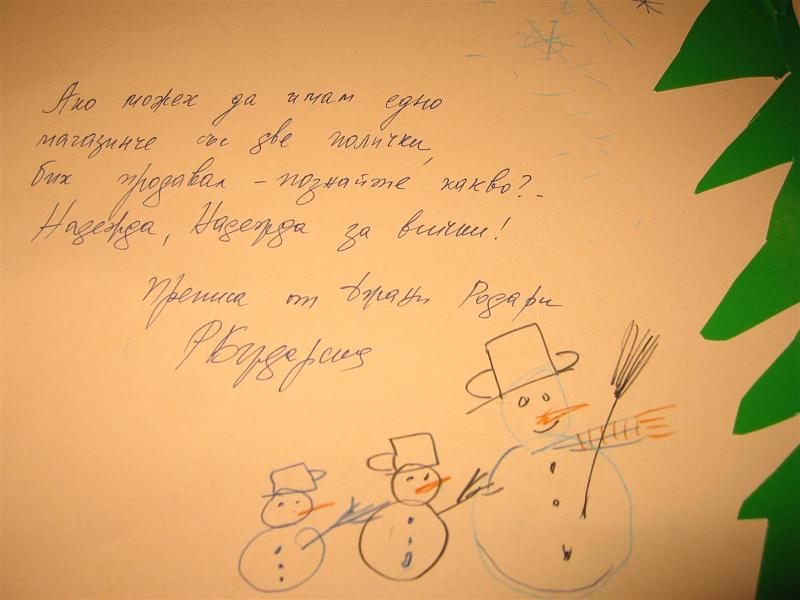 Ако можех да имам едно
магазинче със две полички,
бих продавал - познайте какво? -
Надежда, Надежда за всички!
Преписа от Джани Родари